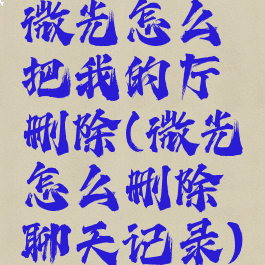 微光怎么
把我的厅
删除(微光
怎么删除
聊天记录)